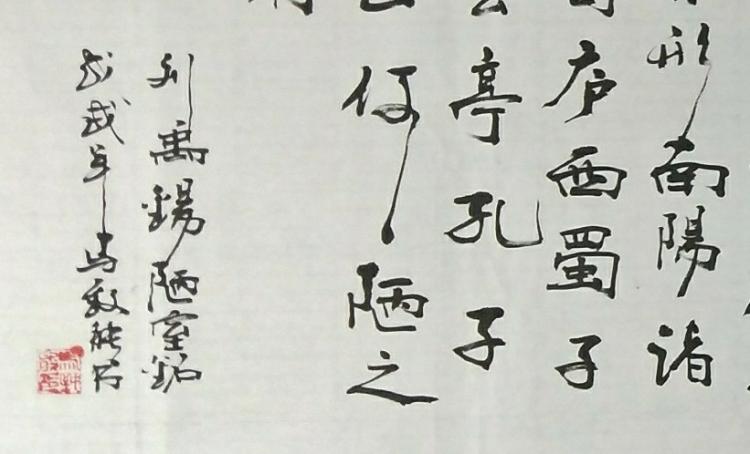 形南陽诸
庐西蜀子
云亭孔子
曰何陋之
刘禹锡陋室铭
戊戌年